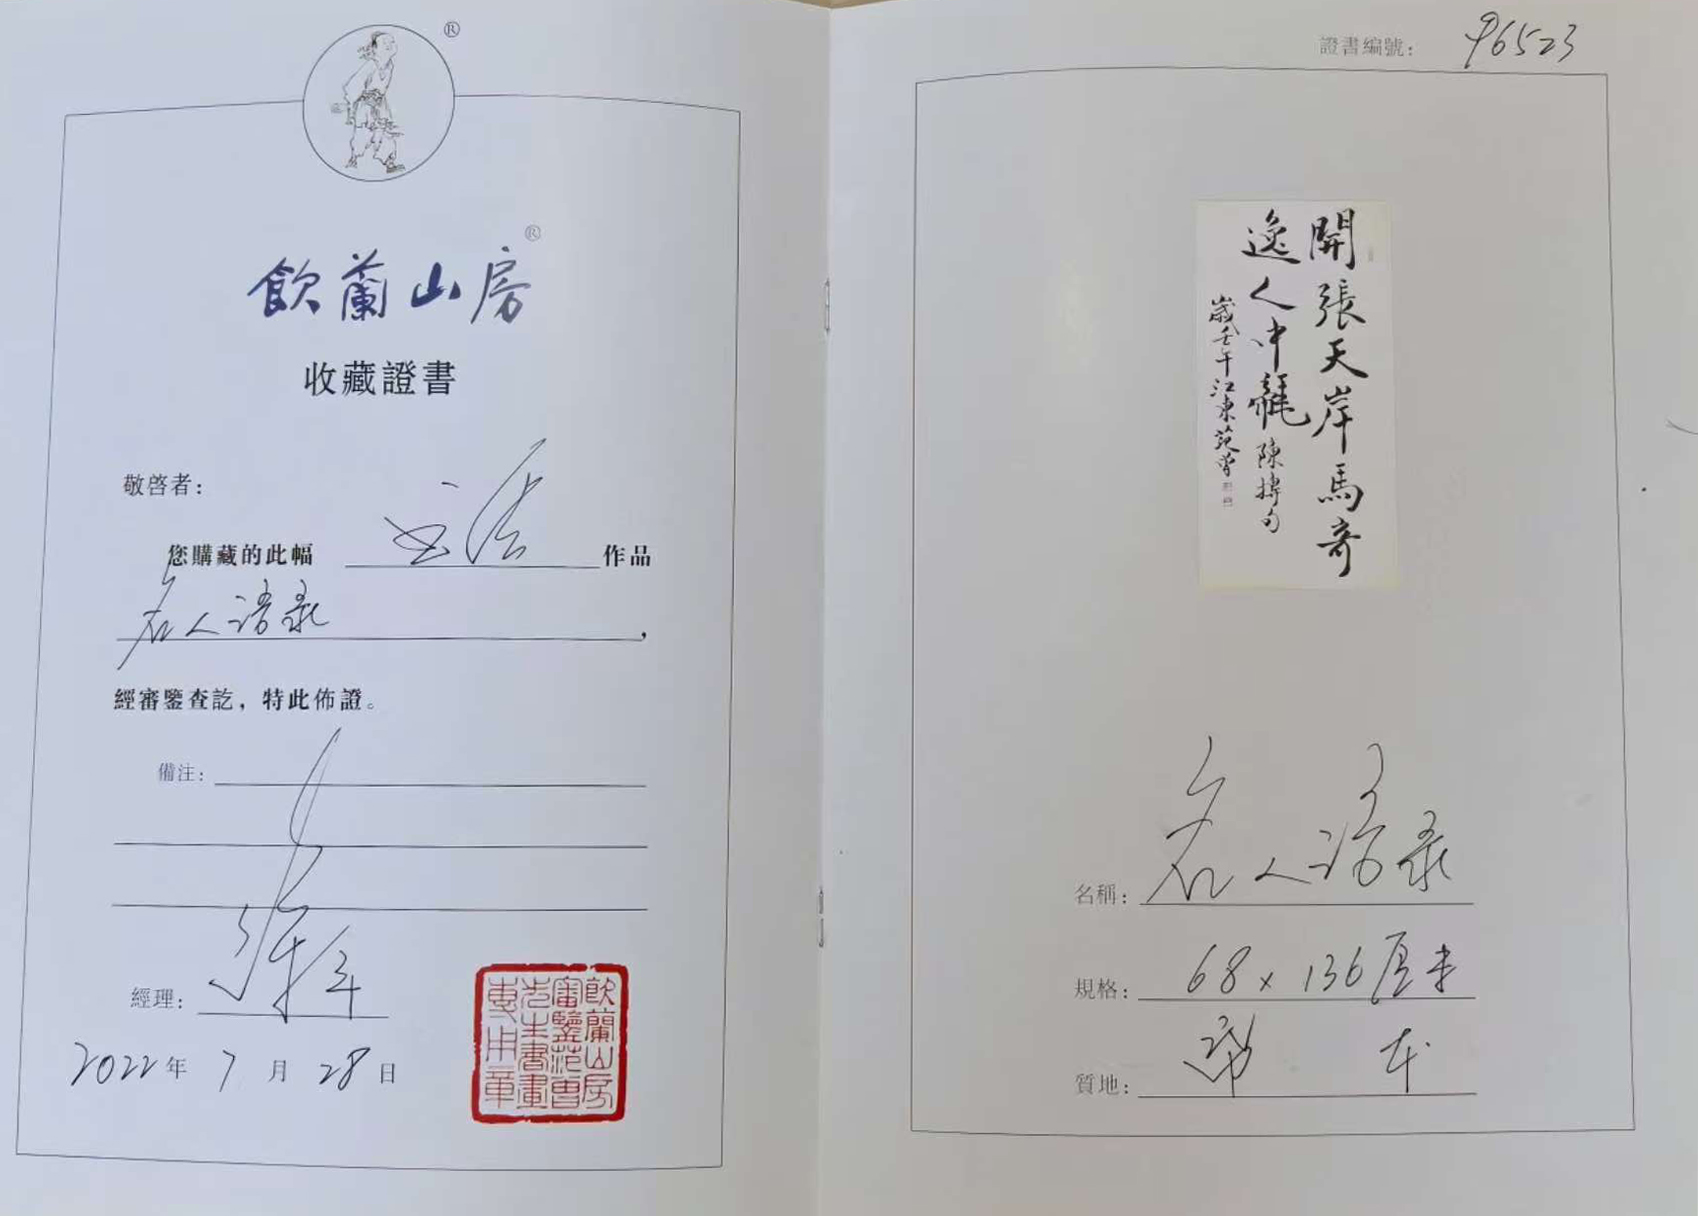 ®
飲蘭山房®
收藏證書
敬啓者：
您購藏的此幅 書法 作品
名人語录，
經審鑒查訖，特此佈證。
備注：
經理：
2022年 7月 28日
飲蘭山房
審鑒范曾
先生書畫
專用章
證書编號： 96523
開張天岸馬奇
逸人中龍 陳摶句
歲壬午江東范曾
名稱： 名人語录
規格： 68×136厘米
質地： 纸本